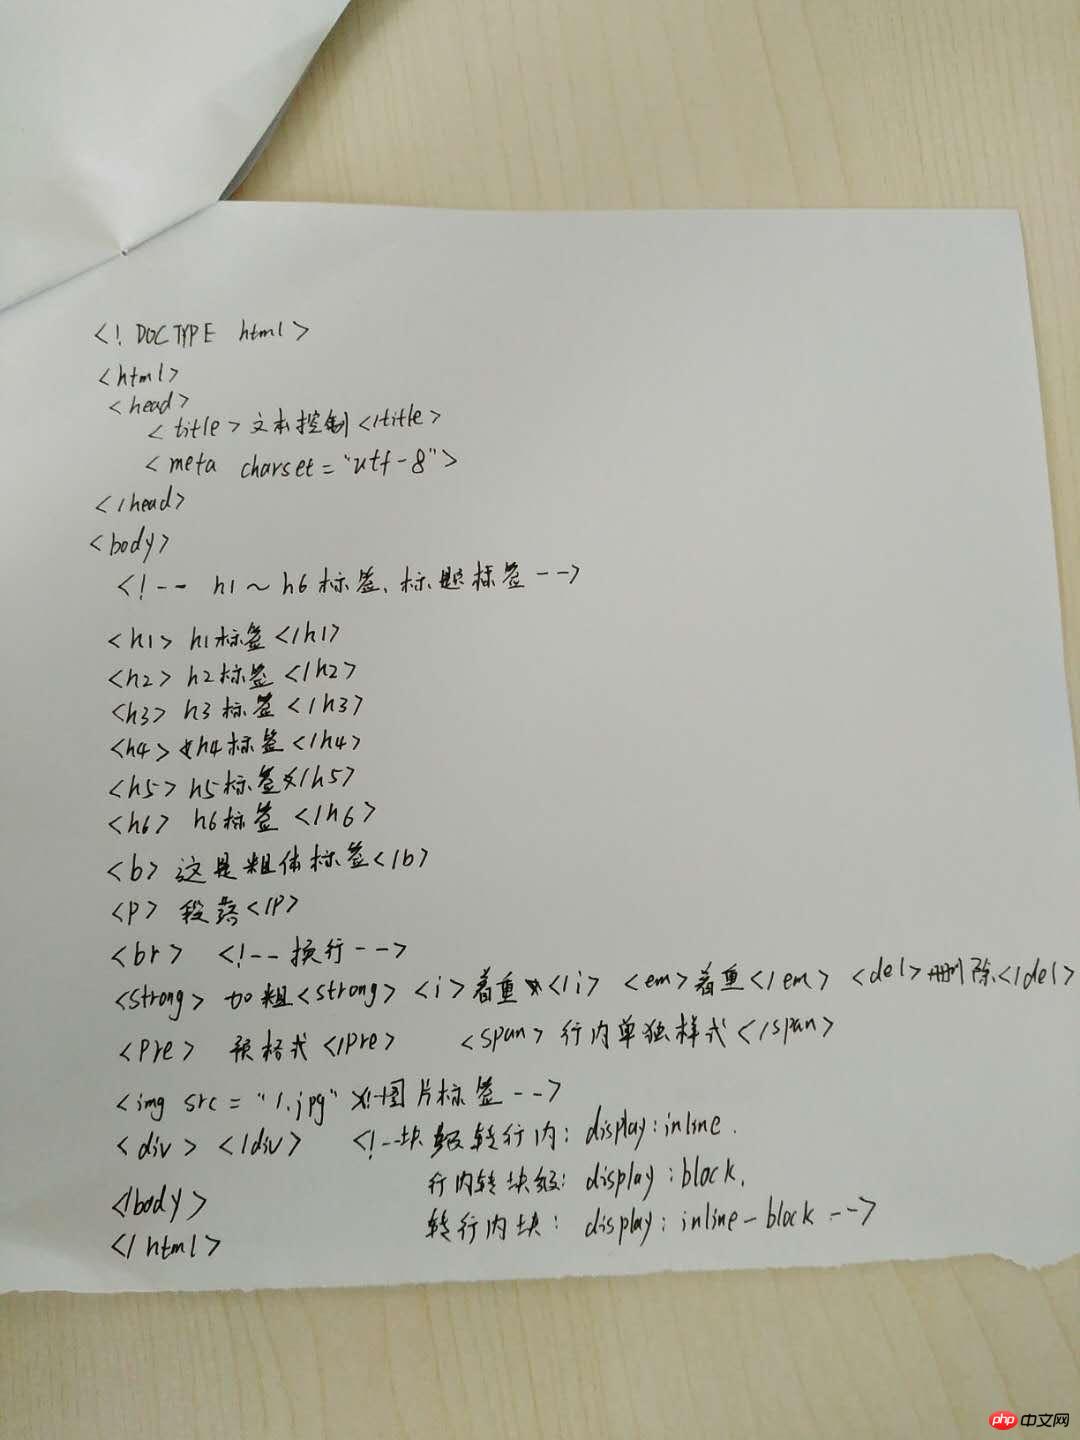 <! DOCTYPE html>
<html>
<head>
<title>文本控制</title>
<meta charset="utf-8">
</head>
<body>
<!-- h1~h6标签、标题标签-->
<h1> h1标签</h1>
<h2> h2标签</h2>
<h3> h3标签</h3>
<h4> h4标签</h4>
<h5> h5标签</h5>
<h6> h6标签</h6>
<b> 这是粗体标签</b>
<p> 段落</p>
<br> <!--换行-->
<strong> 加粗<strong> <i>着重</i> <em>着重</em> <del>删除</del>
<pre> 预格式</pre> <span>行内单独样式</span>
<img src="1.jpg" 图片标签-->
<div></div> <!--块级转行内: display:inline.
</body> 行内转块级: display:block.
</html> 转行内块: display:inline-block-->
php 中文网